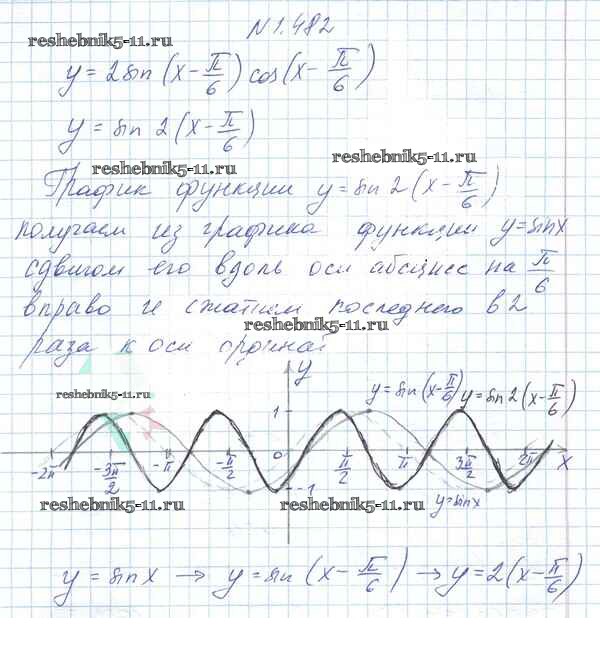 N 1.482
reshebnik5-11.ru
y = 2 sin (x - π/6) cos (x - π/6)
y = sin 2 (x - π/6)
reshebnik5-11.ru reshebnik5-11.ru
График функции y = sin 2 (x - π/6)
получаем из графика функции y = sin x
сдвигом его вдоль оси абсцисс на π/6
вправо и сжатием последнего в 2
reshebnik5-11.ru
раза к оси ординат
y
reshebnik5-11.ru 1 y = sin (x - π/6) y = sin 2 (x - π/6)
-2π -3π/2 -π -π/2 0 π/2 π 3π/2 2π x
reshebnik5-11.ru -1 reshebnik5-11.ru y = sin x
y = sin x → y = sin (x - π/6) → y = 2 (x - π/6)